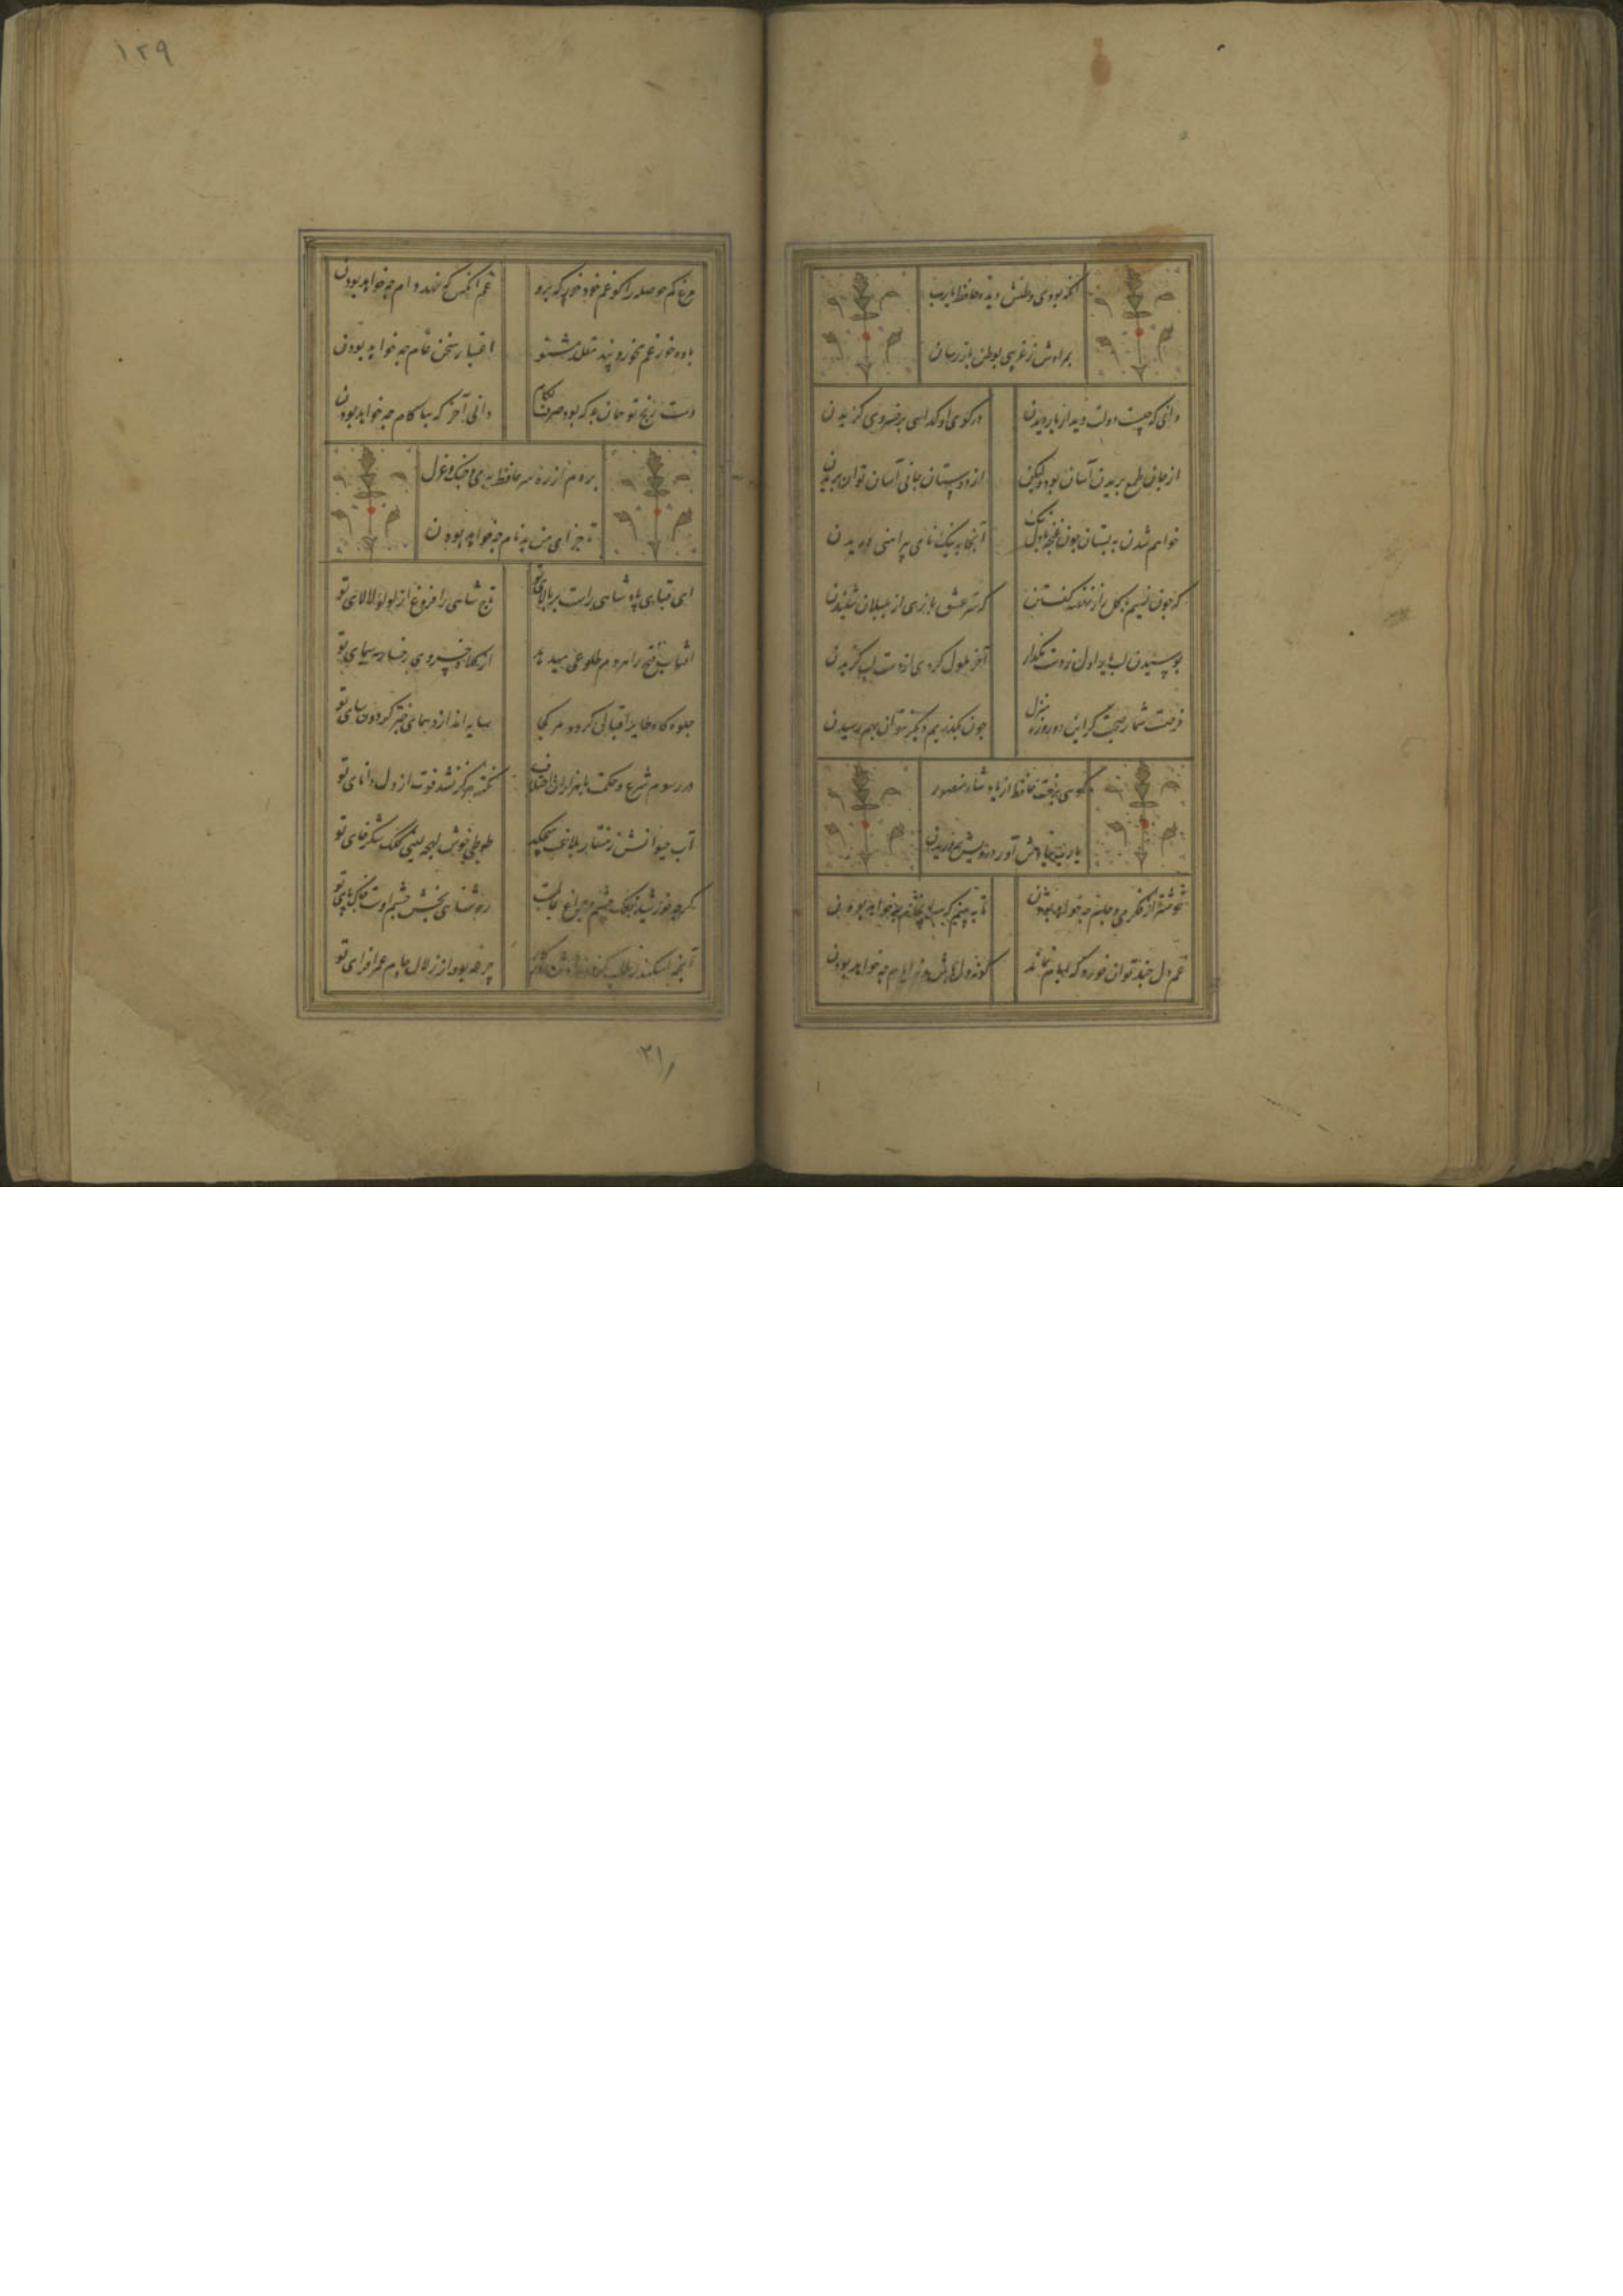 آنکه بودی وطنش دیده حافظ یا رب
بمرادش ز غریبی بوطن باز رسان
دانی که چیست دولت دیدار یار دیدن
در کوی او گدایی بر خسروی گزیدن
از جان طمع بریدن آسان بود ولیکن
از دوستان جانی آسان توان بریدن
خواهم شدن به بستان چون غنچه با دل تنگ
آنجا به نیک نامی پیراهنی دریدن
که چون نسیم با گل راز نهفته گفتن
که سر عشق بازی از بلبلان شنیدن
بوسیدن لب یار اول ز دست مگذار
آخر ملول گردی از دست لب گزیدن
فرصت شمار صحبت کز این دو روزه منزل
چون بگذریم دیگر نتوان بهم رسیدن
گویی برفت حافظ از یاد شاه منصور
یا رب بیادش آور درویش پروریدن
خوشتر از فکر می و جام چه خواهد بودن
تا به بینم که سرانجام چه خواهد بودن
غم دل چند توان خورد که ایام نماند
گو نه دل باش و نه ایام چه خواهد بودن
۱۲۹
مرغ کم حوصله را گو غم خود خور که برو
غم آنکس که نهد دام چه خواهد بودن
باده خور غم مخور و پند مقلد مشنو
اعتبار سخن عام چه خواهد بودن
دست رنج تو همان به که بود صرف بکام
دانی آخر که بناکام چه خواهد بودن
بردم از ره دل حافظ بدف و چنگ و غزل
تا جزای من بدنام چه خواهد بودن
ای قبای پادشاهی راست بر بالای تو
تاج شاهی را فروغ از لولو لالای تو
آفتاب فتح را هر دم طلوعی میدهد
از کلاه خسروی رخسار مه سیمای تو
جلوه گاه طایر اقبال گردد هر کجا
سایه اندازد همای چتر گردون سای تو
در رسوم شرع و حکمت با هزاران اختلاف
نکته هرگز نشد فوت از دل دانای تو
آب حیوانش ز منقار بلاغت میچکد
طوطی خوش لهجه یعنی کلک شکر خای تو
گرچه خورشید فلک چشم و چراغ عالمست
روشنایی بخش چشم اوست خاک پای تو
آنچه اسکندر طلب کرد و ندادش روزگار
جرعه بود از زلال جام عمر افزای تو
۳۱